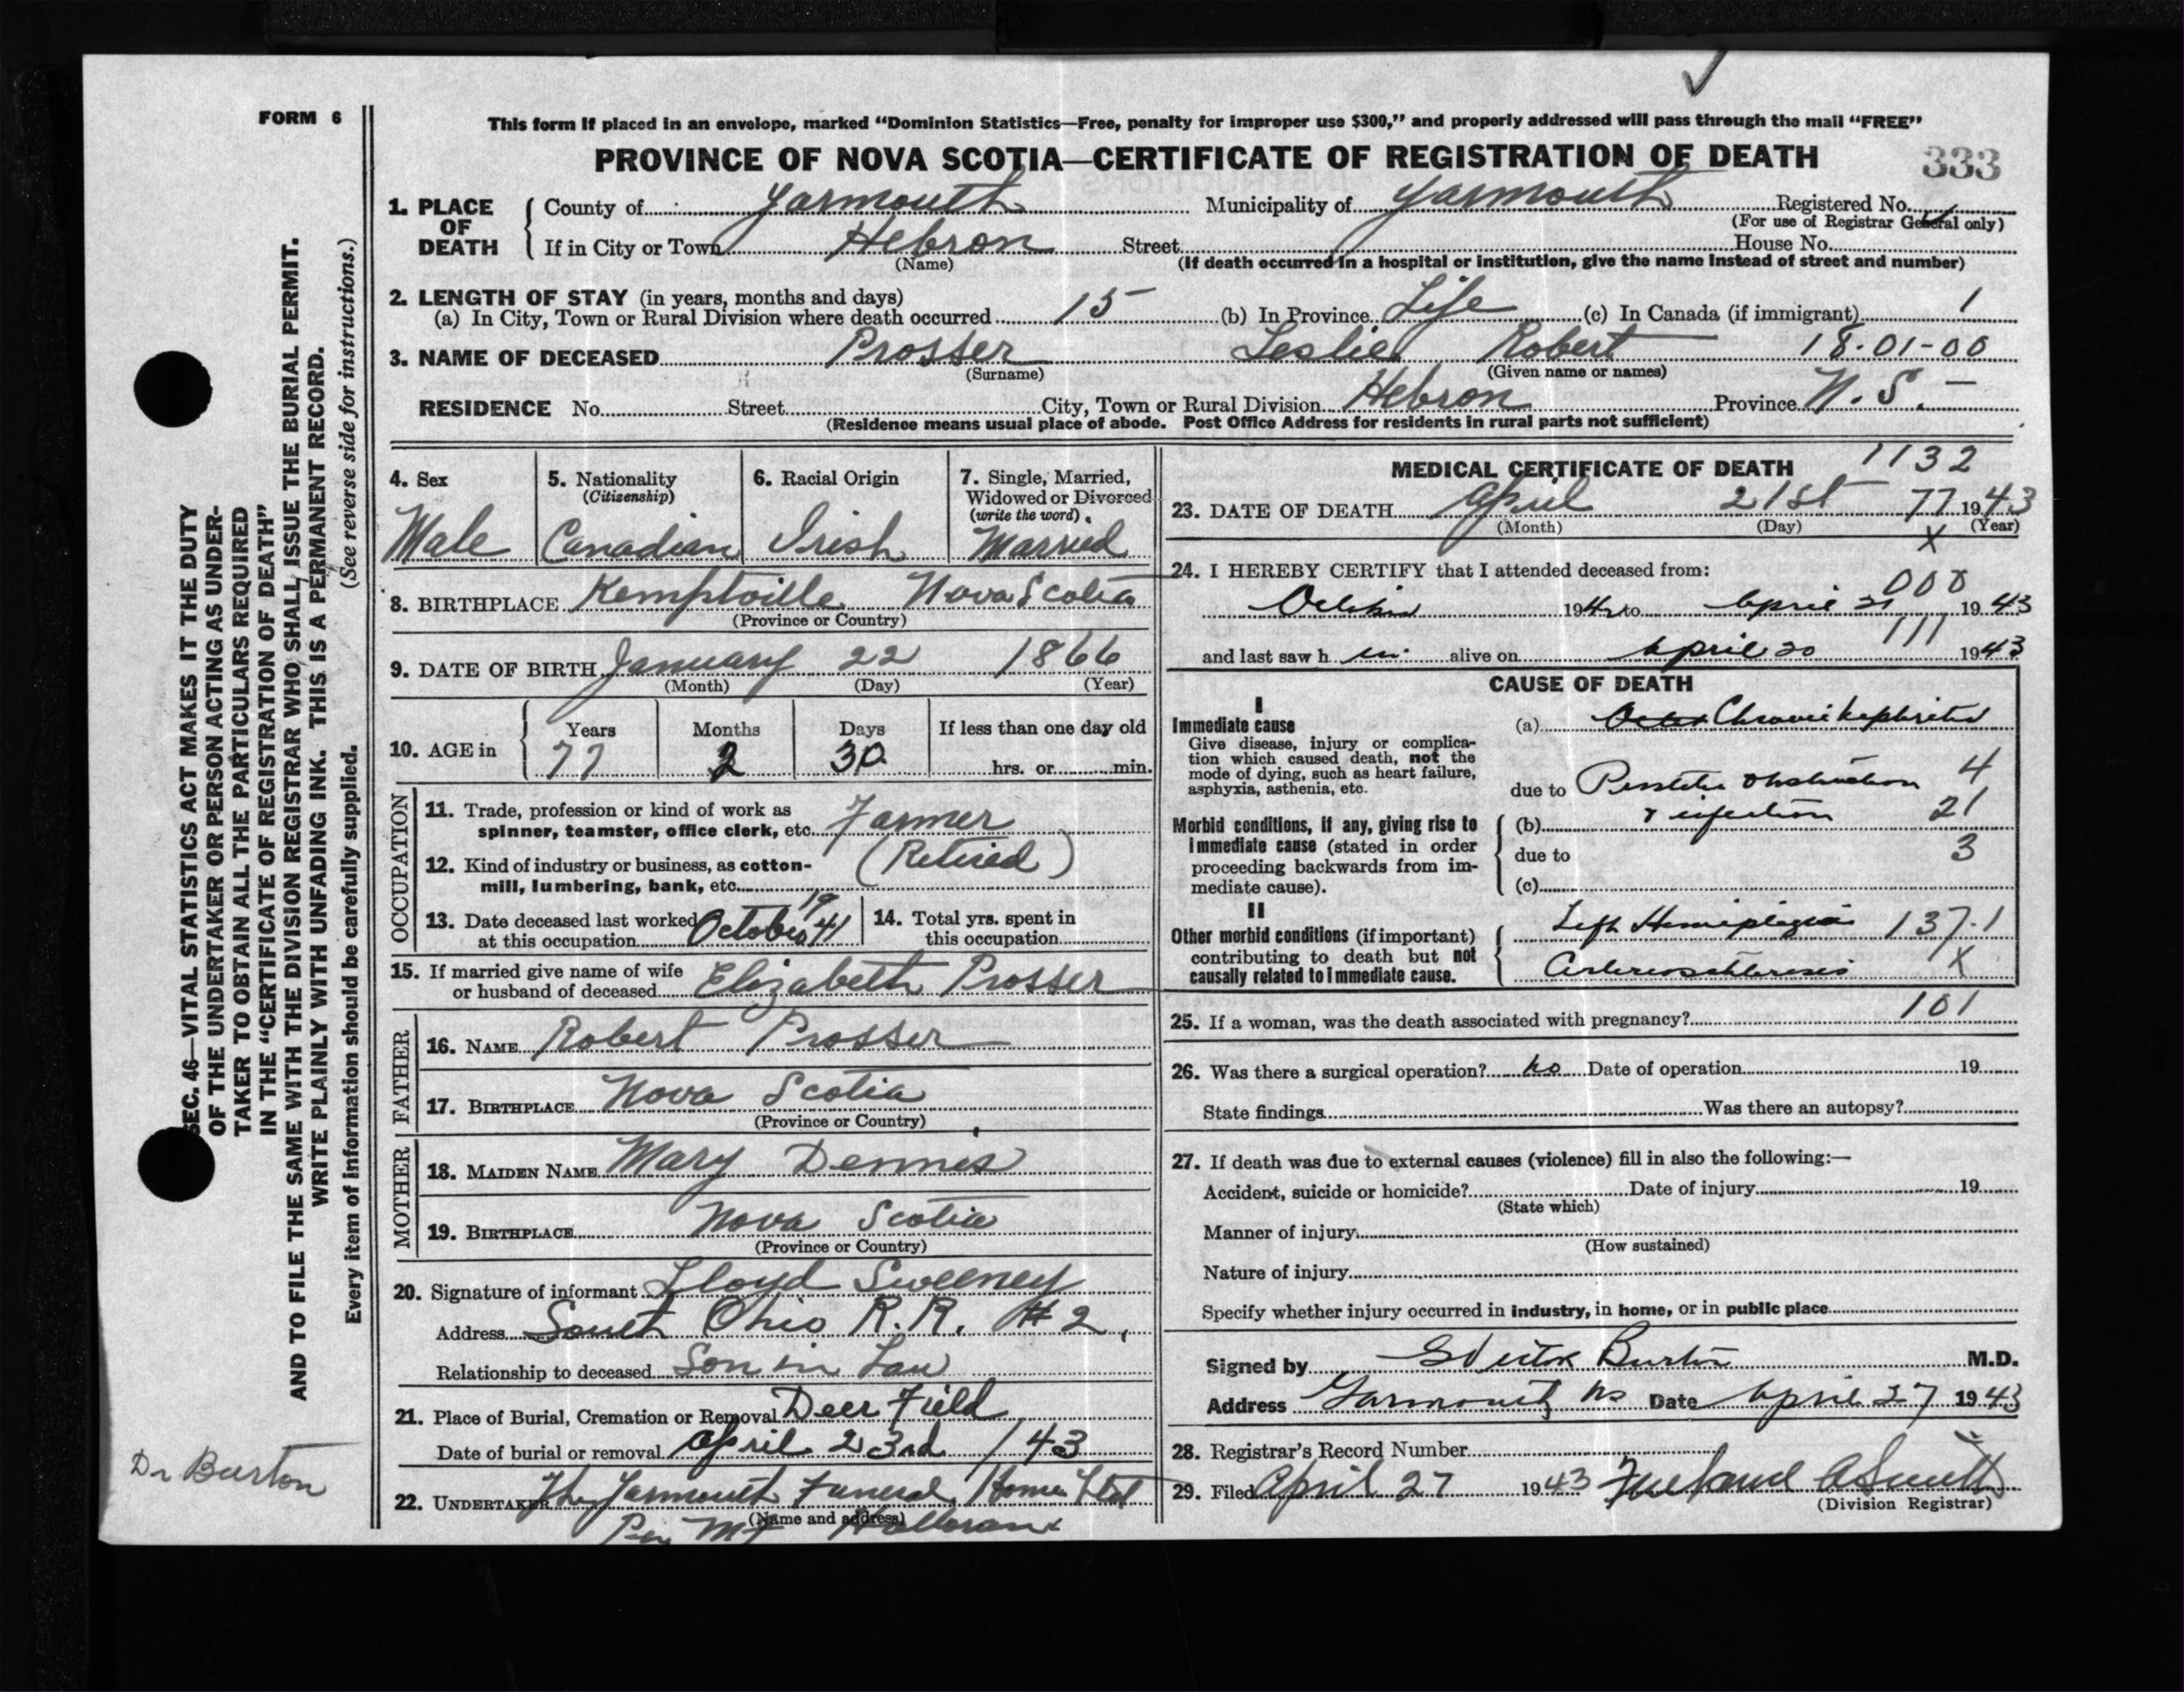 FORM 6
This form if placed in an envelope, marked “Dominion Statistics—Free, penalty for improper use $300,” and properly addressed will pass through the mail “FREE”
PROVINCE OF NOVA SCOTIA—CERTIFICATE OF REGISTRATION OF DEATH 333
1. PLACE OF DEATH
County of Yarmouth Municipality of Yarmouth Registered No.
(For use of Registrar General only)
If in City or Town Hebron Street House No.
(Name) (If death occurred in a hospital or institution, give the name instead of street and number)
2. LENGTH OF STAY (in years, months and days)
(a) In City, Town or Rural Division where death occurred 15 (b) In Province Life (c) In Canada (if immigrant) 1
3. NAME OF DECEASED Prosser Leslie Robert 18-01-00
(Surname) (Given name or names)
RESIDENCE No. Street City, Town or Rural Division Hebron Province N.S. —
(Residence means usual place of abode. Post Office Address for residents in rural parts not sufficient)
4. Sex Male
5. Nationality (Citizenship) Canadian
6. Racial Origin Irish
7. Single, Married, Widowed or Divorced (write the word) Married
8. BIRTHPLACE Kemptville Nova Scotia
(Province or Country)
9. DATE OF BIRTH January 22 1866
(Month) (Day) (Year)
10. AGE in
Years Months Days If less than one day old
77 2 30 hrs. or min.
OCCUPATION
11. Trade, profession or kind of work as
spinner, teamster, office clerk, etc. Farmer
12. Kind of industry or business, as cotton- (Retired)
mill, lumbering, bank, etc.
13. Date deceased last worked at this occupation October 1941
14. Total yrs. spent in this occupation
15. If married give name of wife
or husband of deceased Elizabeth Prosser
FATHER
16. NAME Robert Prosser
17. BIRTHPLACE Nova Scotia
(Province or Country)
MOTHER
18. MAIDEN NAME Mary Dennis
19. BIRTHPLACE Nova Scotia
(Province or Country)
20. Signature of informant Lloyd Sweeney
Address South Ohio R.R. #2,
Relationship to deceased Son in Law
21. Place of Burial, Cremation or Removal Deer Field
Date of burial or removal April 23rd /43
22. UNDERTAKER The Yarmouth Funeral Home Ltd
(Name and address)
Per Halloran
MEDICAL CERTIFICATE OF DEATH 1132
23. DATE OF DEATH April 21st 77 1943
(Month) (Day) (Year)
X
24. I HEREBY CERTIFY that I attended deceased from:
000
October 1942 to April 21 1943
111
and last saw h im alive on April 20 1943
CAUSE OF DEATH
I
Immediate cause (a) Chronic Nephritis
Give disease, injury or complica-
tion which caused death, not the
mode of dying, such as heart failure,
asphyxia, asthenia, etc.
due to Prostatic Obstruction 4
Morbid conditions, if any, giving rise to
immediate cause (stated in order
proceeding backwards from im-
mediate cause).
(b) & infection 21
due to 3
(c)
II
Other morbid conditions (if important)
contributing to death but not
causally related to immediate cause.
Left Hemiplegia 137.1
Arteriosclerosis X
25. If a woman, was the death associated with pregnancy? 101
26. Was there a surgical operation? No Date of operation 19
State findings Was there an autopsy?
27. If death was due to external causes (violence) fill in also the following:—
Accident, suicide or homicide? Date of injury 19
(State which)
Manner of injury
(How sustained)
Nature of injury
Specify whether injury occurred in industry, in home, or in public place
Signed by Burton M.D.
Address Yarmouth NS Date April 27 1943
28. Registrar's Record Number
29. Filed April 27 1943 Smith
(Division Registrar)
SEC. 46—VITAL STATISTICS ACT MAKES IT THE DUTY
OF THE UNDERTAKER OR PERSON ACTING AS UNDER-
TAKER TO OBTAIN ALL THE PARTICULARS REQUIRED
IN THE “CERTIFICATE OF REGISTRATION OF DEATH”
AND TO FILE THE SAME WITH THE DIVISION REGISTRAR WHO SHALL ISSUE THE BURIAL PERMIT.
WRITE PLAINLY WITH UNFADING INK. THIS IS A PERMANENT RECORD.
Every item of information should be carefully supplied. (See reverse side for instructions.)
Dr Burton